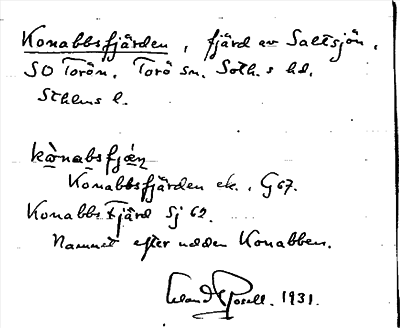 Konabbsfjärden, fjärd av Saltsjön,
SO Torön. Torö sn. Soth.s hd.
Sthlms l.
kånabsfjän
Konabbsfjärden ek. G67.
Konabbs Fjärd Sj 62.
Namnet efter udden Konabben.
1931.